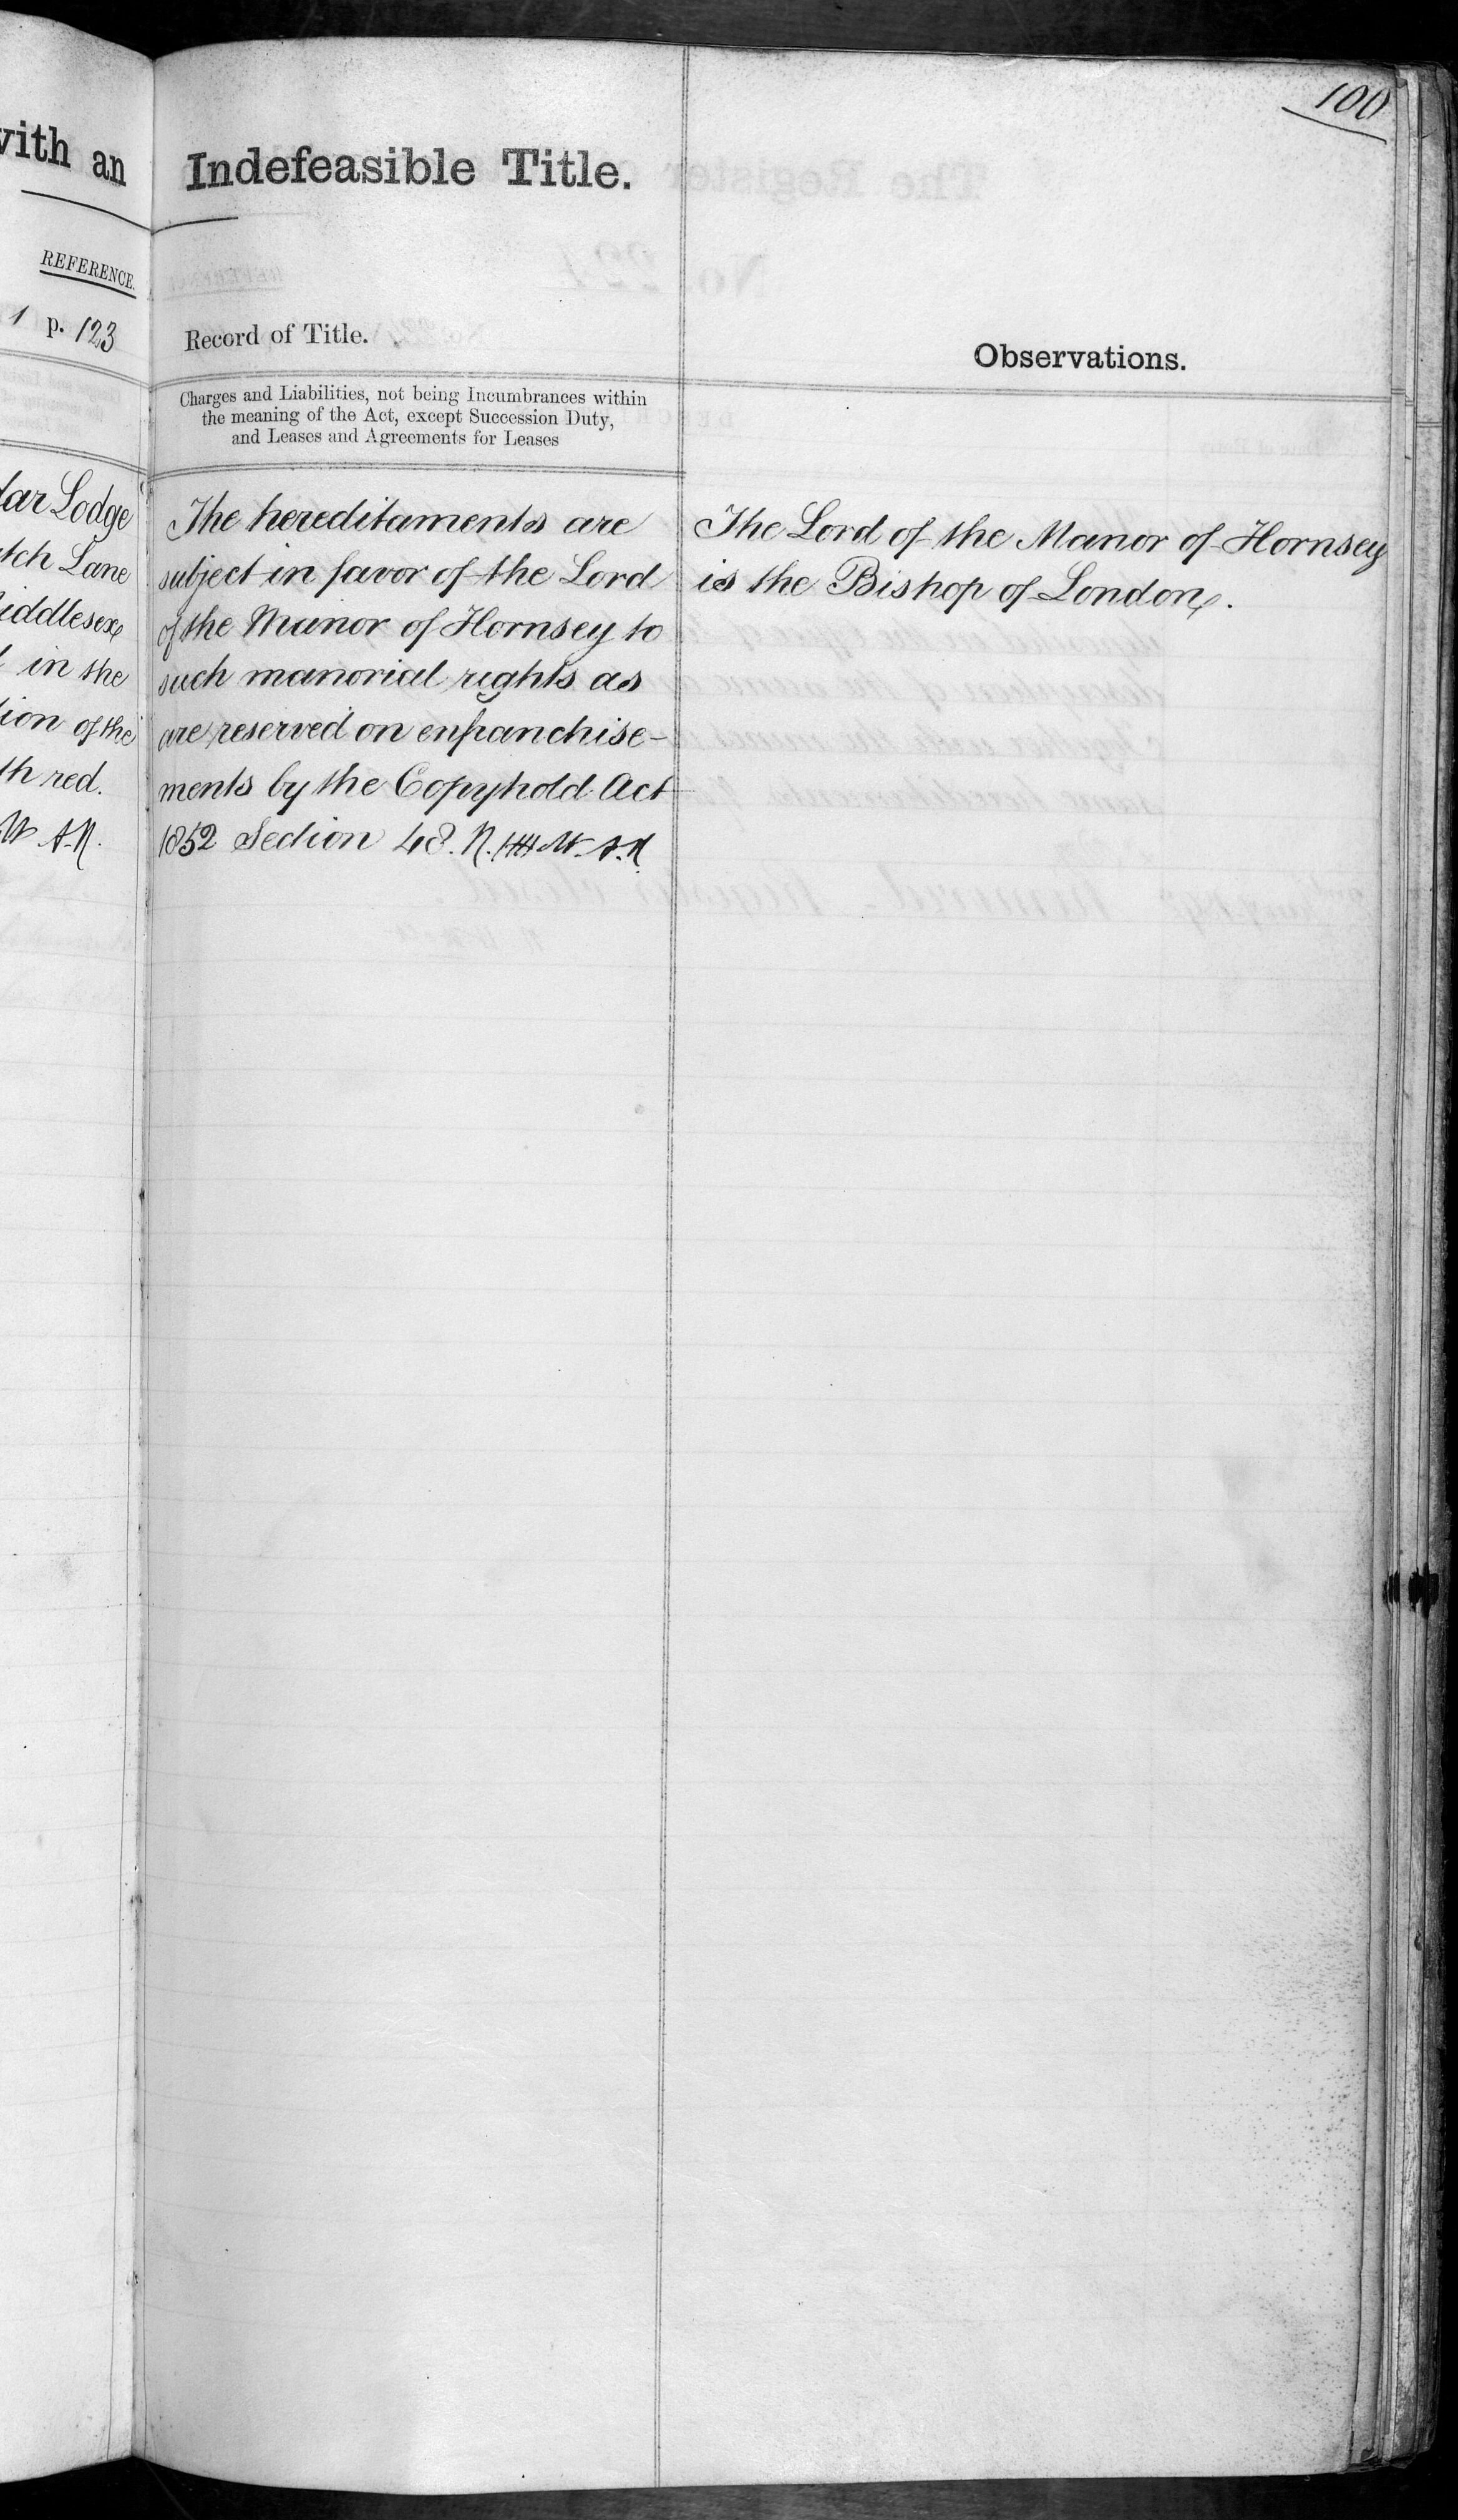 100
with an
REFERENCE.
1 p. 123
dar Lodge
tch Lane
iddlesex
in the
tion of the
th red.
W A.N.
Indefeasible Title.
Record of Title.
Charges and Liabilities, not being Incumbrances within
the meaning of the Act, except Succession Duty,
and Leases and Agreements for Leases
The hereditaments are
subject in favor of the Lord
of the Manor of Hornsey to
such manorial rights as
are reserved on enfranchise-
ments by the Copyhold Act
1852 Section 48.
Observations.
The Lord of the Manor of Hornsey
is the Bishop of London.